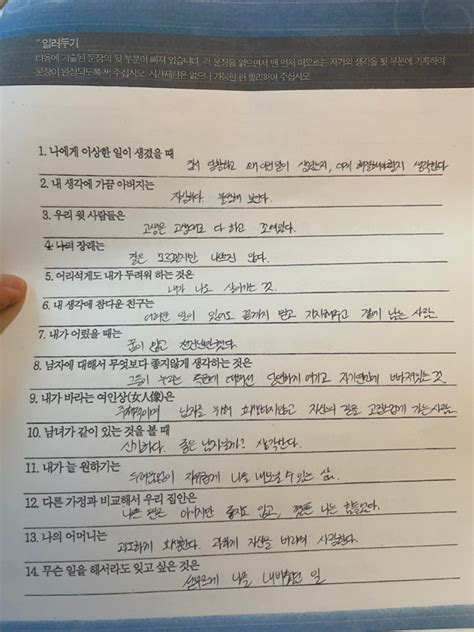 * 일러두기
다음에 기술된 문장의 뒷 부분이 빠져 있습니다. 각 문장을 읽으면서 맨 먼저 떠오르는 자기의 생각을 뒷 부분에 기록하여
문장이 완성되도록 써 주십시오. 시간제한은 없으나 가능한 한 빨리하여 주십시오.
1. 나에게 이상한 일이 생겼을 때
당황하고 왜 이런일이 생겼는지, 어떻게 해결해야할지 생각한다
2. 내 생각에 가끔 아버지는
불쌍해 보인다.
3. 우리 윗 사람들은
고생은 고생대로 다 하고
4. 나의 장래는
잘은 모르겠지만 나쁘진 않다.
5. 어리석게도 내가 두려워 하는 것은
내가 나도 싫어하는 것.
6. 내 생각에 참다운 친구는
어려운 일이 있어도 끝까지 믿고 지지해주고 곁에 남는 사람.
7. 내가 어렸을 때는
꿈이 많고
8. 남자에 대해서 무엇보다 좋지않게 생각하는 것은
당연하게 여기고 빠져있는 것
9. 내가 바라는 여인상(女人像)은
남자를 위해 희생하지않고 자신의 길을 가는사람.
10. 남녀가 같이 있는 것을 볼 때
신기하다. 좋은 남자일까? 생각한다.
11. 내가 늘 원하기는
자유롭게 나를 내보일 수 있는 삶.
12. 다른 가정과 비교해서 우리 집안은
나쁜 편은 아니지만 좋지도 않고, 나는 힘들었다.
13. 나의 어머니는
과도하게 희생한다. 과하게 자신을 버리며 사랑한다.
14. 무슨 일을 해서라도 잊고 싶은 것은
나를 일